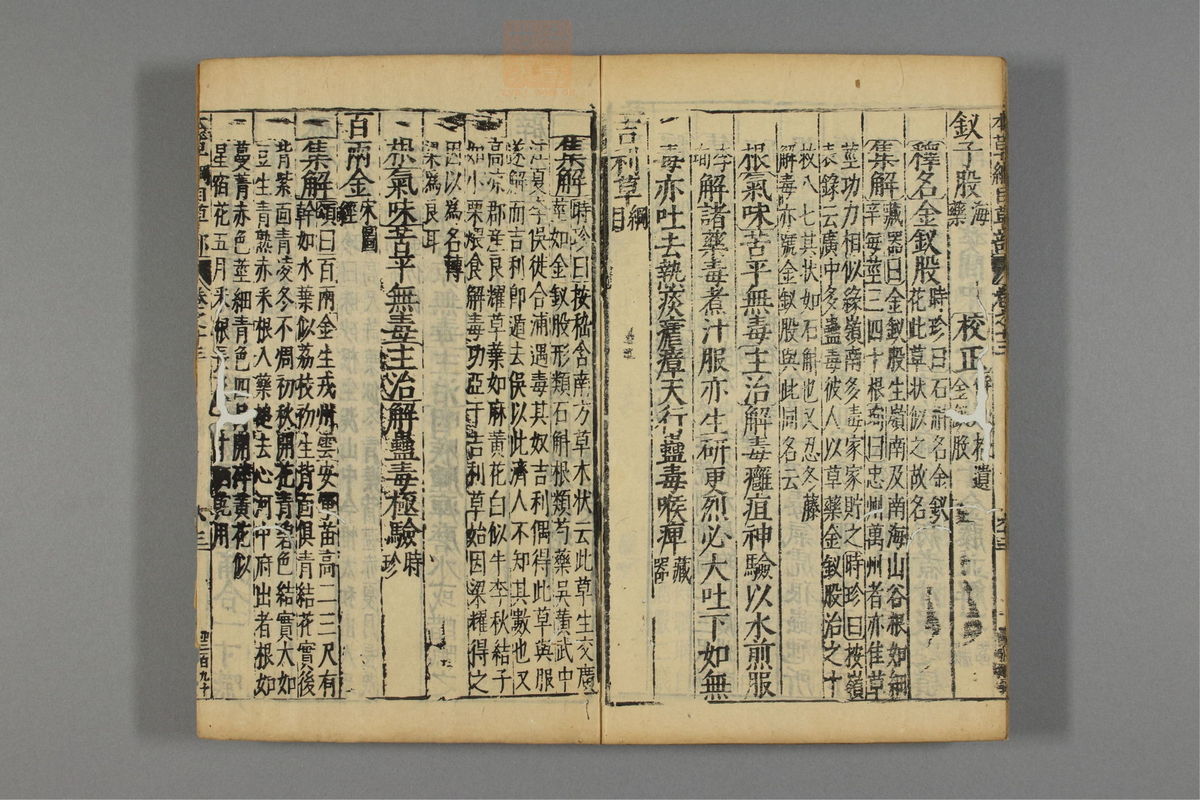 釵子股海藥
校正併入拾遺金釵股
釋名金釵股時珍曰石斛名金釵
花此草狀似之故名
集解藏器曰金釵股生嶺南及南海山谷根如細
辛每莖三四十根珣曰忠州萬州者亦佳草
莖功力相似緣嶺南多毒家家貯之時珍曰按嶺
表錄云廣中多蠱毒彼人以草藥金釵股治之十
救八九其狀如石斛也又忍冬藤
解毒亦號金釵股與此同名云
根氣味苦平無毒主治解毒癰疽神驗以水煎服
李珣解諸藥毒煮汁服亦生研更烈必大吐下如無
毒亦吐去熱痰瘧瘴天行蠱毒喉痺藏器
吉利草綱目
集解時珍曰按嵇含南方草木狀云此草生交廣
莖如金釵股形類石斛根類芍藥吳黃武中
江夏李俁徙合浦遇毒其奴吉利偶得此草與服
遂解而吉利即遁去俁以此濟人不知其數也又
高涼郡產良耀草葉如麻黃花白似牛李秋結子
如小粟煨食解毒功亞于吉利草始因梁耀得之
因以爲名轉
梁爲良耳
根氣味苦平無毒主治解蠱毒極驗時珍
百兩金宋圖經
集解頌曰百兩金生戎州雲安軍苗高二三尺有
幹如木葉似荔枝初生背面俱青結花實後
背紫面青凌冬不凋初秋開花青碧色結實大如
豆生青熟赤采根入藥槌去心河中府出者根如
蔓菁赤色莖細青色四月開碎黃花似
星宿花五月采根長